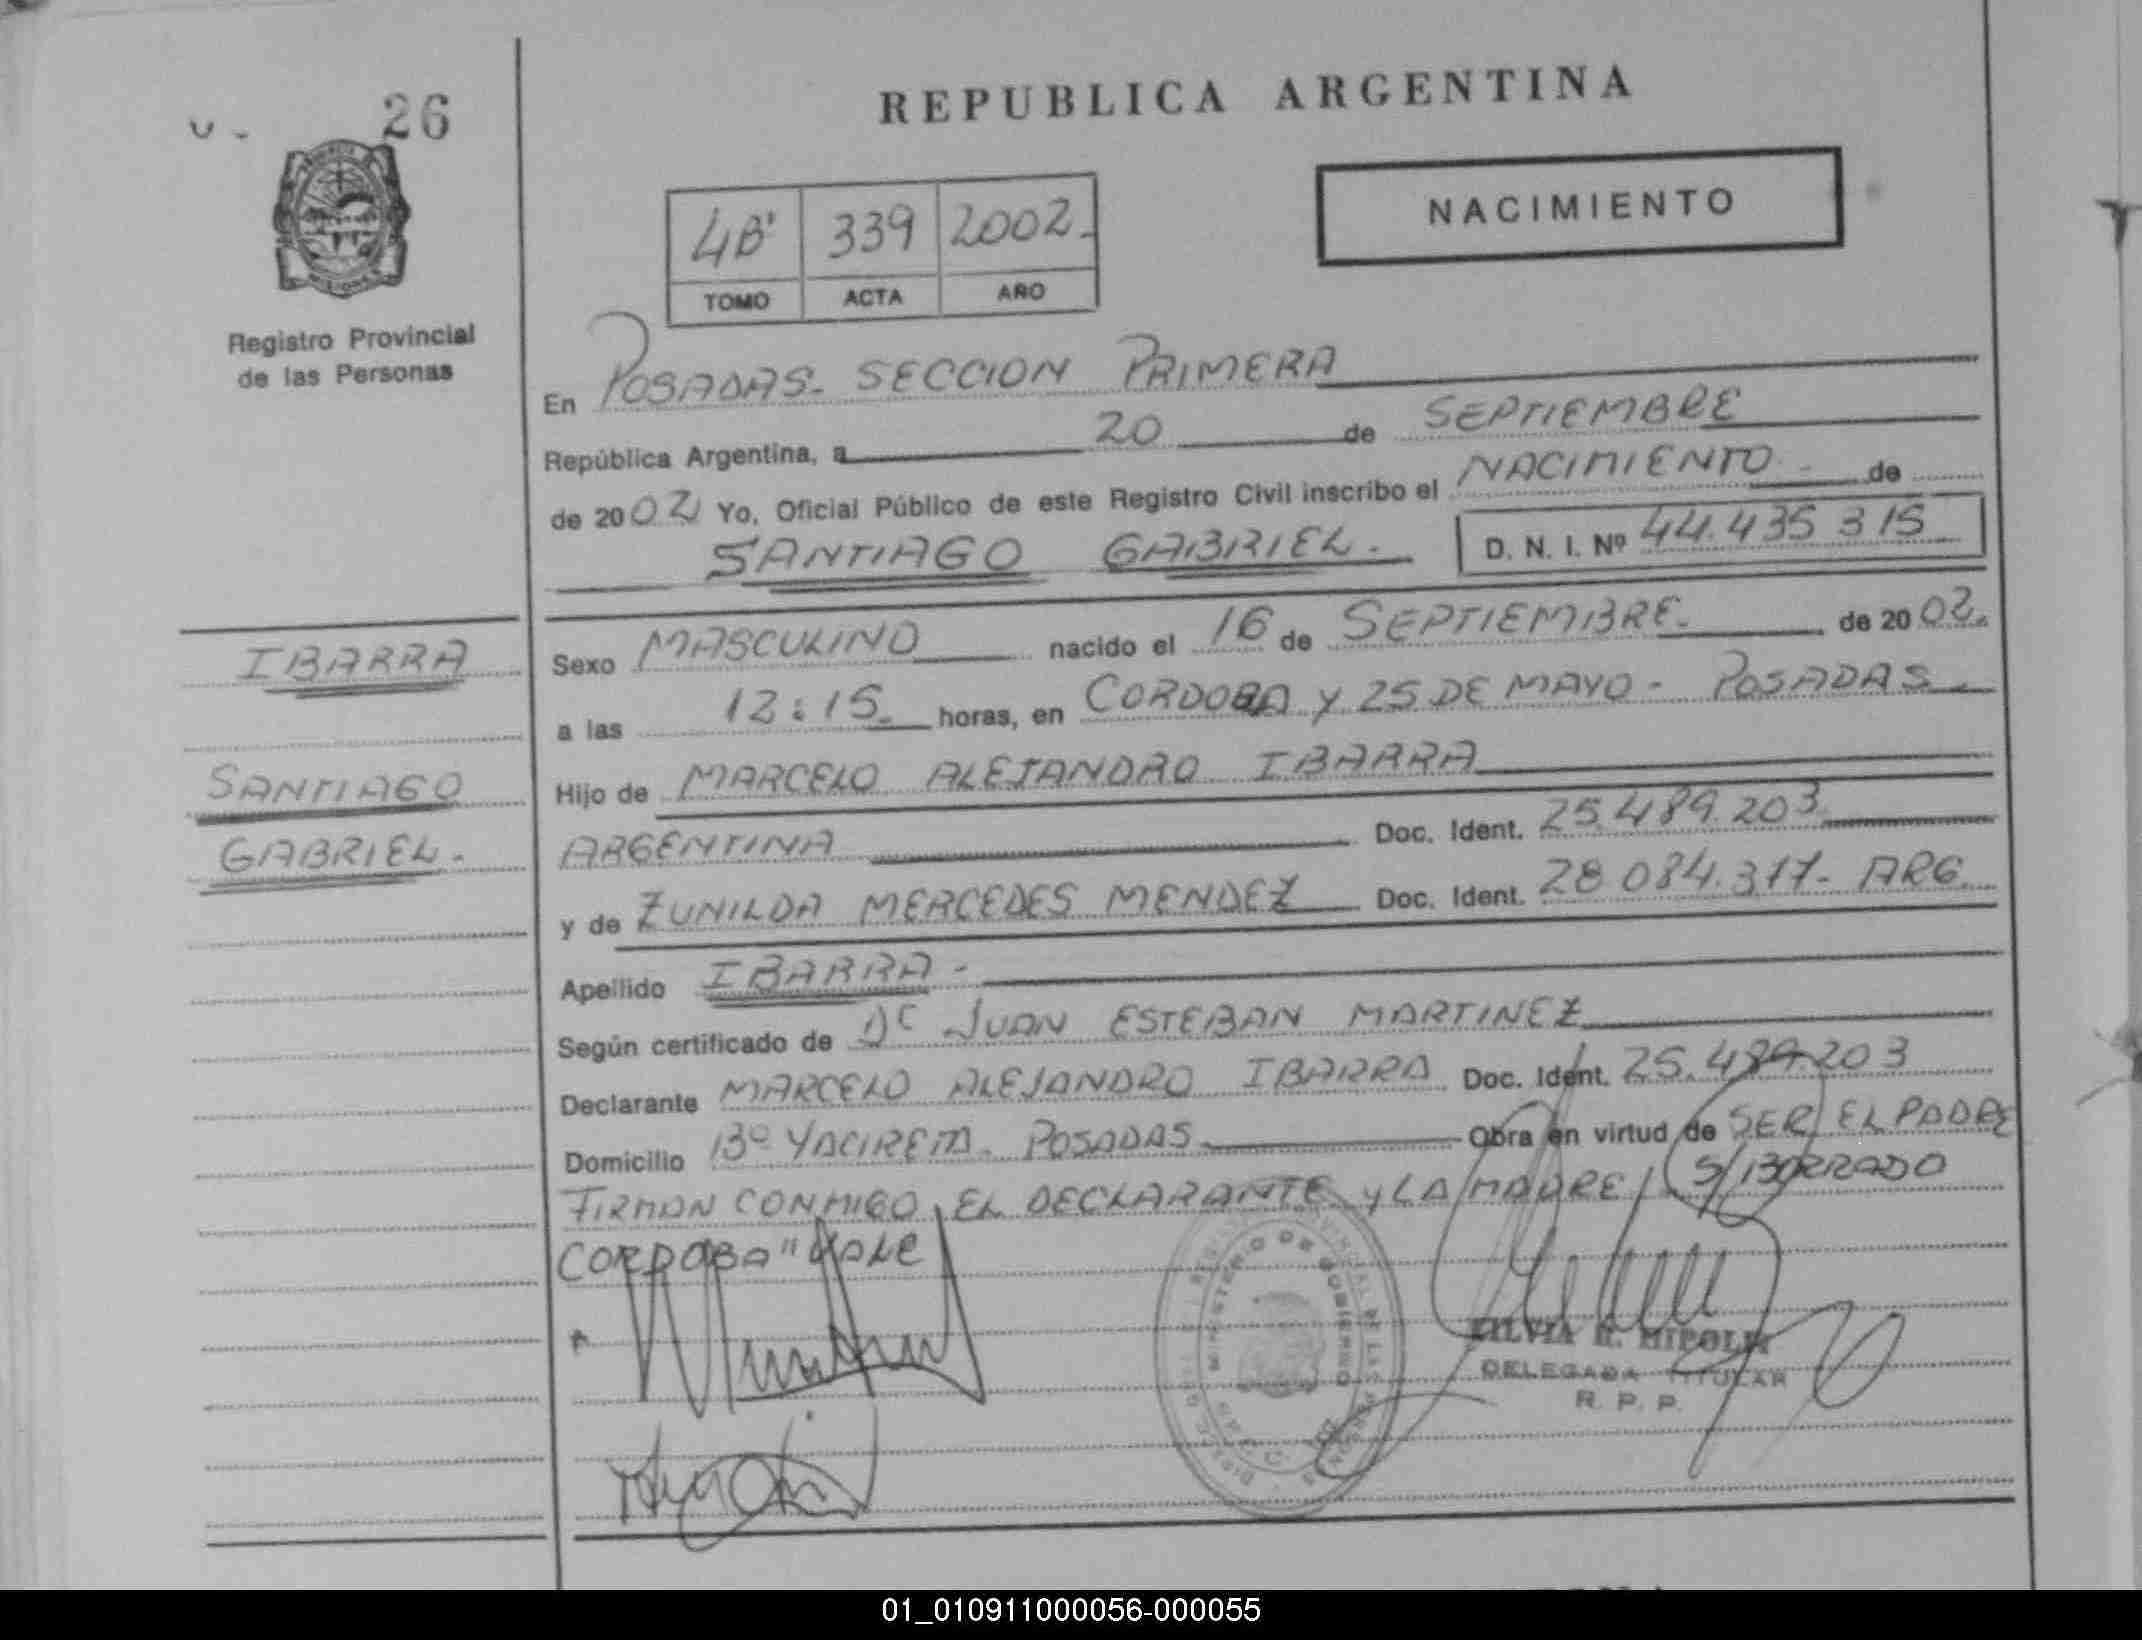 26
REPUBLICA ARGENTINA
NACIMIENTO
4B' 339 2002.
TOMO ACTA AÑO
MISIONES
Registro Provincial
de las Personas
En POSADAS. SECCION PRIMERA
República Argentina, a 20 de SEPTIEMBRE
de 2002 Yo, Oficial Público de este Registro Civil inscribo el NACIMIENTO de
SANTIAGO GABRIEL. D. N. I. Nº 44.435 315
IBARRA
SANTIAGO
GABRIEL.
Sexo MASCULINO nacido el 16 de SEPTIEMBRE. de 2002.
a las 12:15. horas, en CORDOBA Y 25 DE MAYO - POSADAS.
Hijo de MARCELO ALEJANDRO IBARRA
ARGENTINA Doc. Ident. 25.489.203
y de ZUNILDA MERCEDES MENDEZ Doc. Ident. 28 084.317- ARG.
Apellido IBARRA -
Según certificado de Dr JUAN ESTEBAN MARTINEZ
Declarante MARCELO ALEJANDRO IBARRA Doc. Ident. 25.489.203
Domicilio Bº YACIRETA. POSADAS Obra en virtud de SER EL PADRE
FIRMAN CONMIGO, EL DECLARANTE y LA MADRE/ S/BORRADO
CORDOBA" VALE
MINISTERIO DE GOBIERNO
SILVIA E. HIPOLI
DELEGADA TITULAR
R. P. P.
01_010911000056-000055